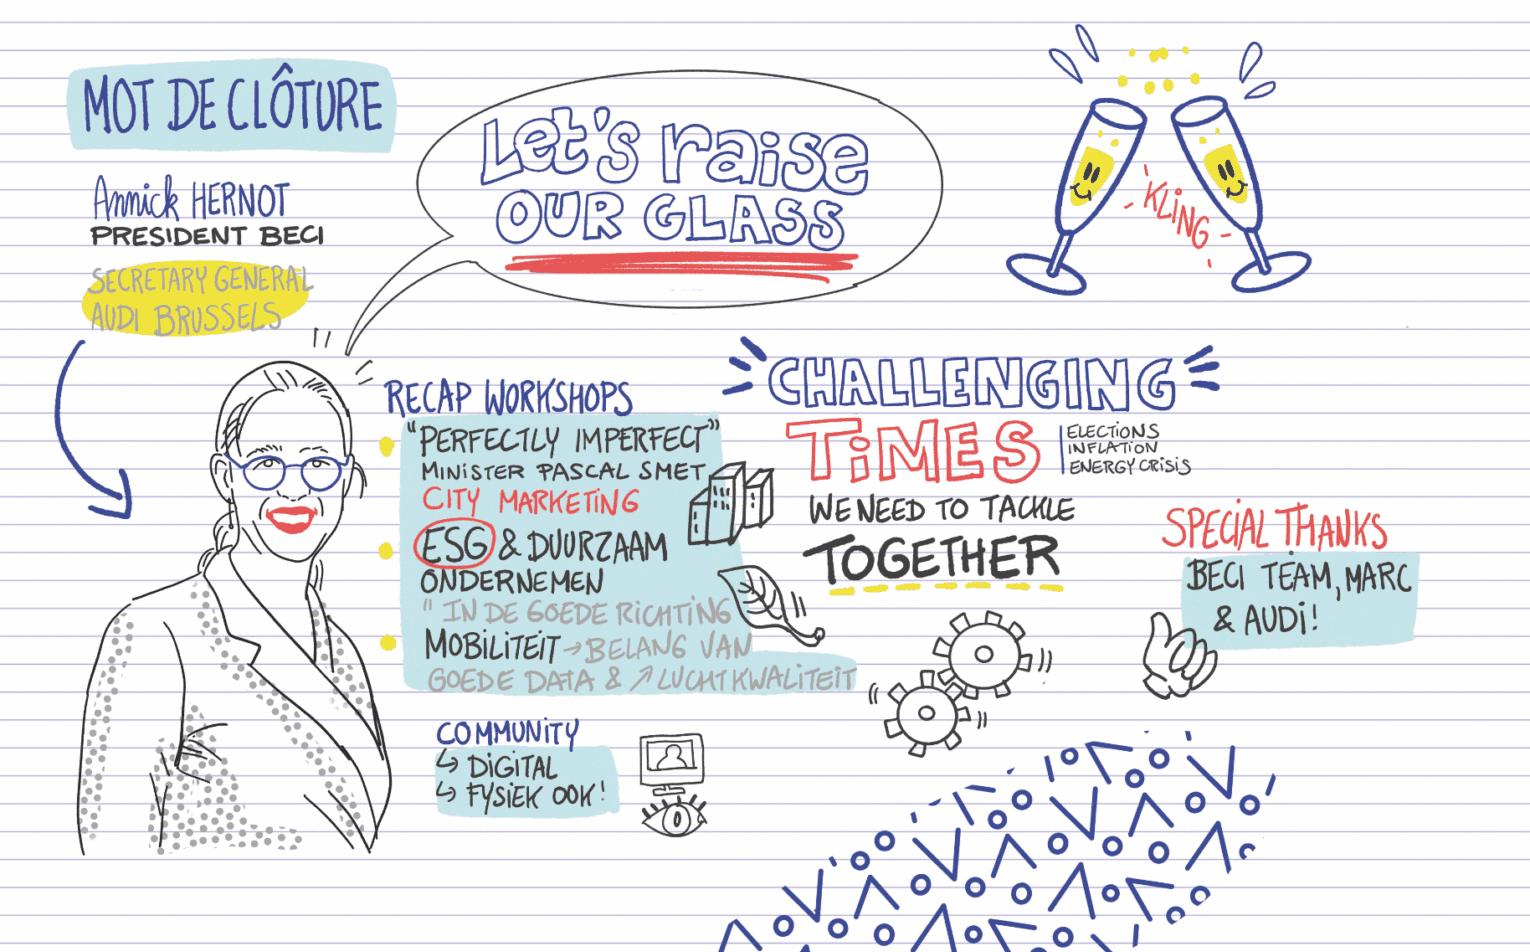 MOT DE CLÔTURE
Annick HERNOT
PRESIDENT BECI
SECRETARY GENERAL
AUDI BRUSSELS
Let's raise
OUR GLASS
KLING
RECAP WORKSHOPS
"PERFECTLY IMPERFECT"
MINISTER PASCAL SMET
CITY MARKETING
ESG & DUURZAAM
ONDERNEMEN
" IN DE GOEDE RICHTING
MOBILITEIT → BELANG VAN
GOEDE DATA & ↗ LUCHTKWALITEIT
COMMUNITY
↳ DIGITAL
↳ FYSIEK OOK!
CHALLENGING
TIMES
ELECTIONS
INFLATION
ENERGY CRISIS
WE NEED TO TACKLE
TOGETHER
SPECIAL THANKS
BECI TEAM, MARC
& AUDI!